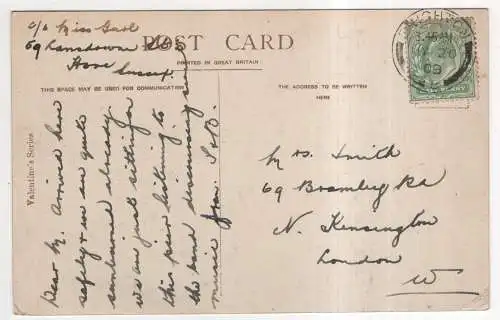 c/o Miss Gash
69 Lansdowne
Hove
Sussex.
POST CARD
PRINTED IN GREAT BRITAIN
THIS SPACE MAY BE USED FOR COMMUNICATION
THE ADDRESS TO BE WRITTEN
HERE
Valentine's Series
Dear M. Arrived here
safely & we are quite
sunburned already.
we are just sitting on
this pier listening to
the band discoursing
music from
Mrs. Smith
69 Bramley Rd
N. Kensington
London
W
BRIGHTON
26
09